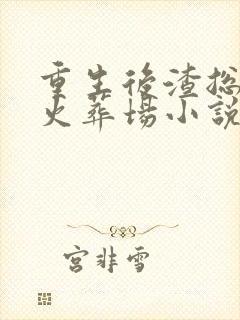 重生後渣総
火葬場小説
宮非雪